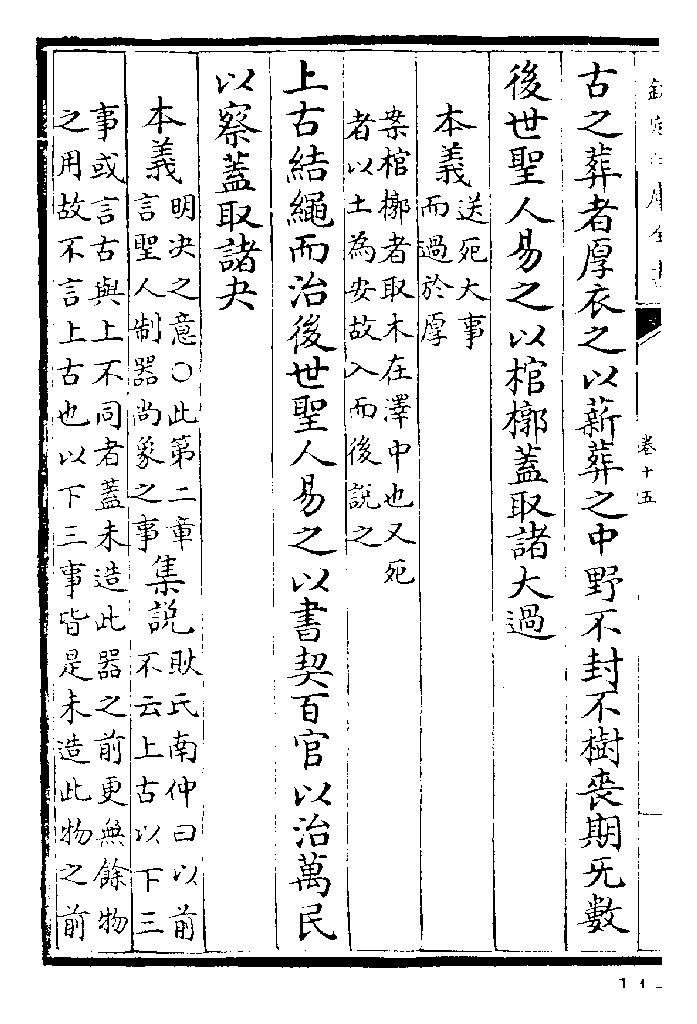 欽定四庫全書
卷十五
古之葬者厚衣之以薪葬之中野不封不樹喪期无數
後世聖人易之以棺槨蓋取諸大過
本義送死大事
而過於厚
案棺槨者取木在澤中也又死
者以土為安故入而後說之
上古結繩而治後世聖人易之以書契百官以治萬民
以察蓋取諸夬
本義明决之意○此第二章
言聖人制器尚象之事
集説耿氏南仲曰以前
不云上古以下三
事或言古與上不同者蓋未造此器之前更無餘物
之用故不言上古也以下三事皆是未造此物之前